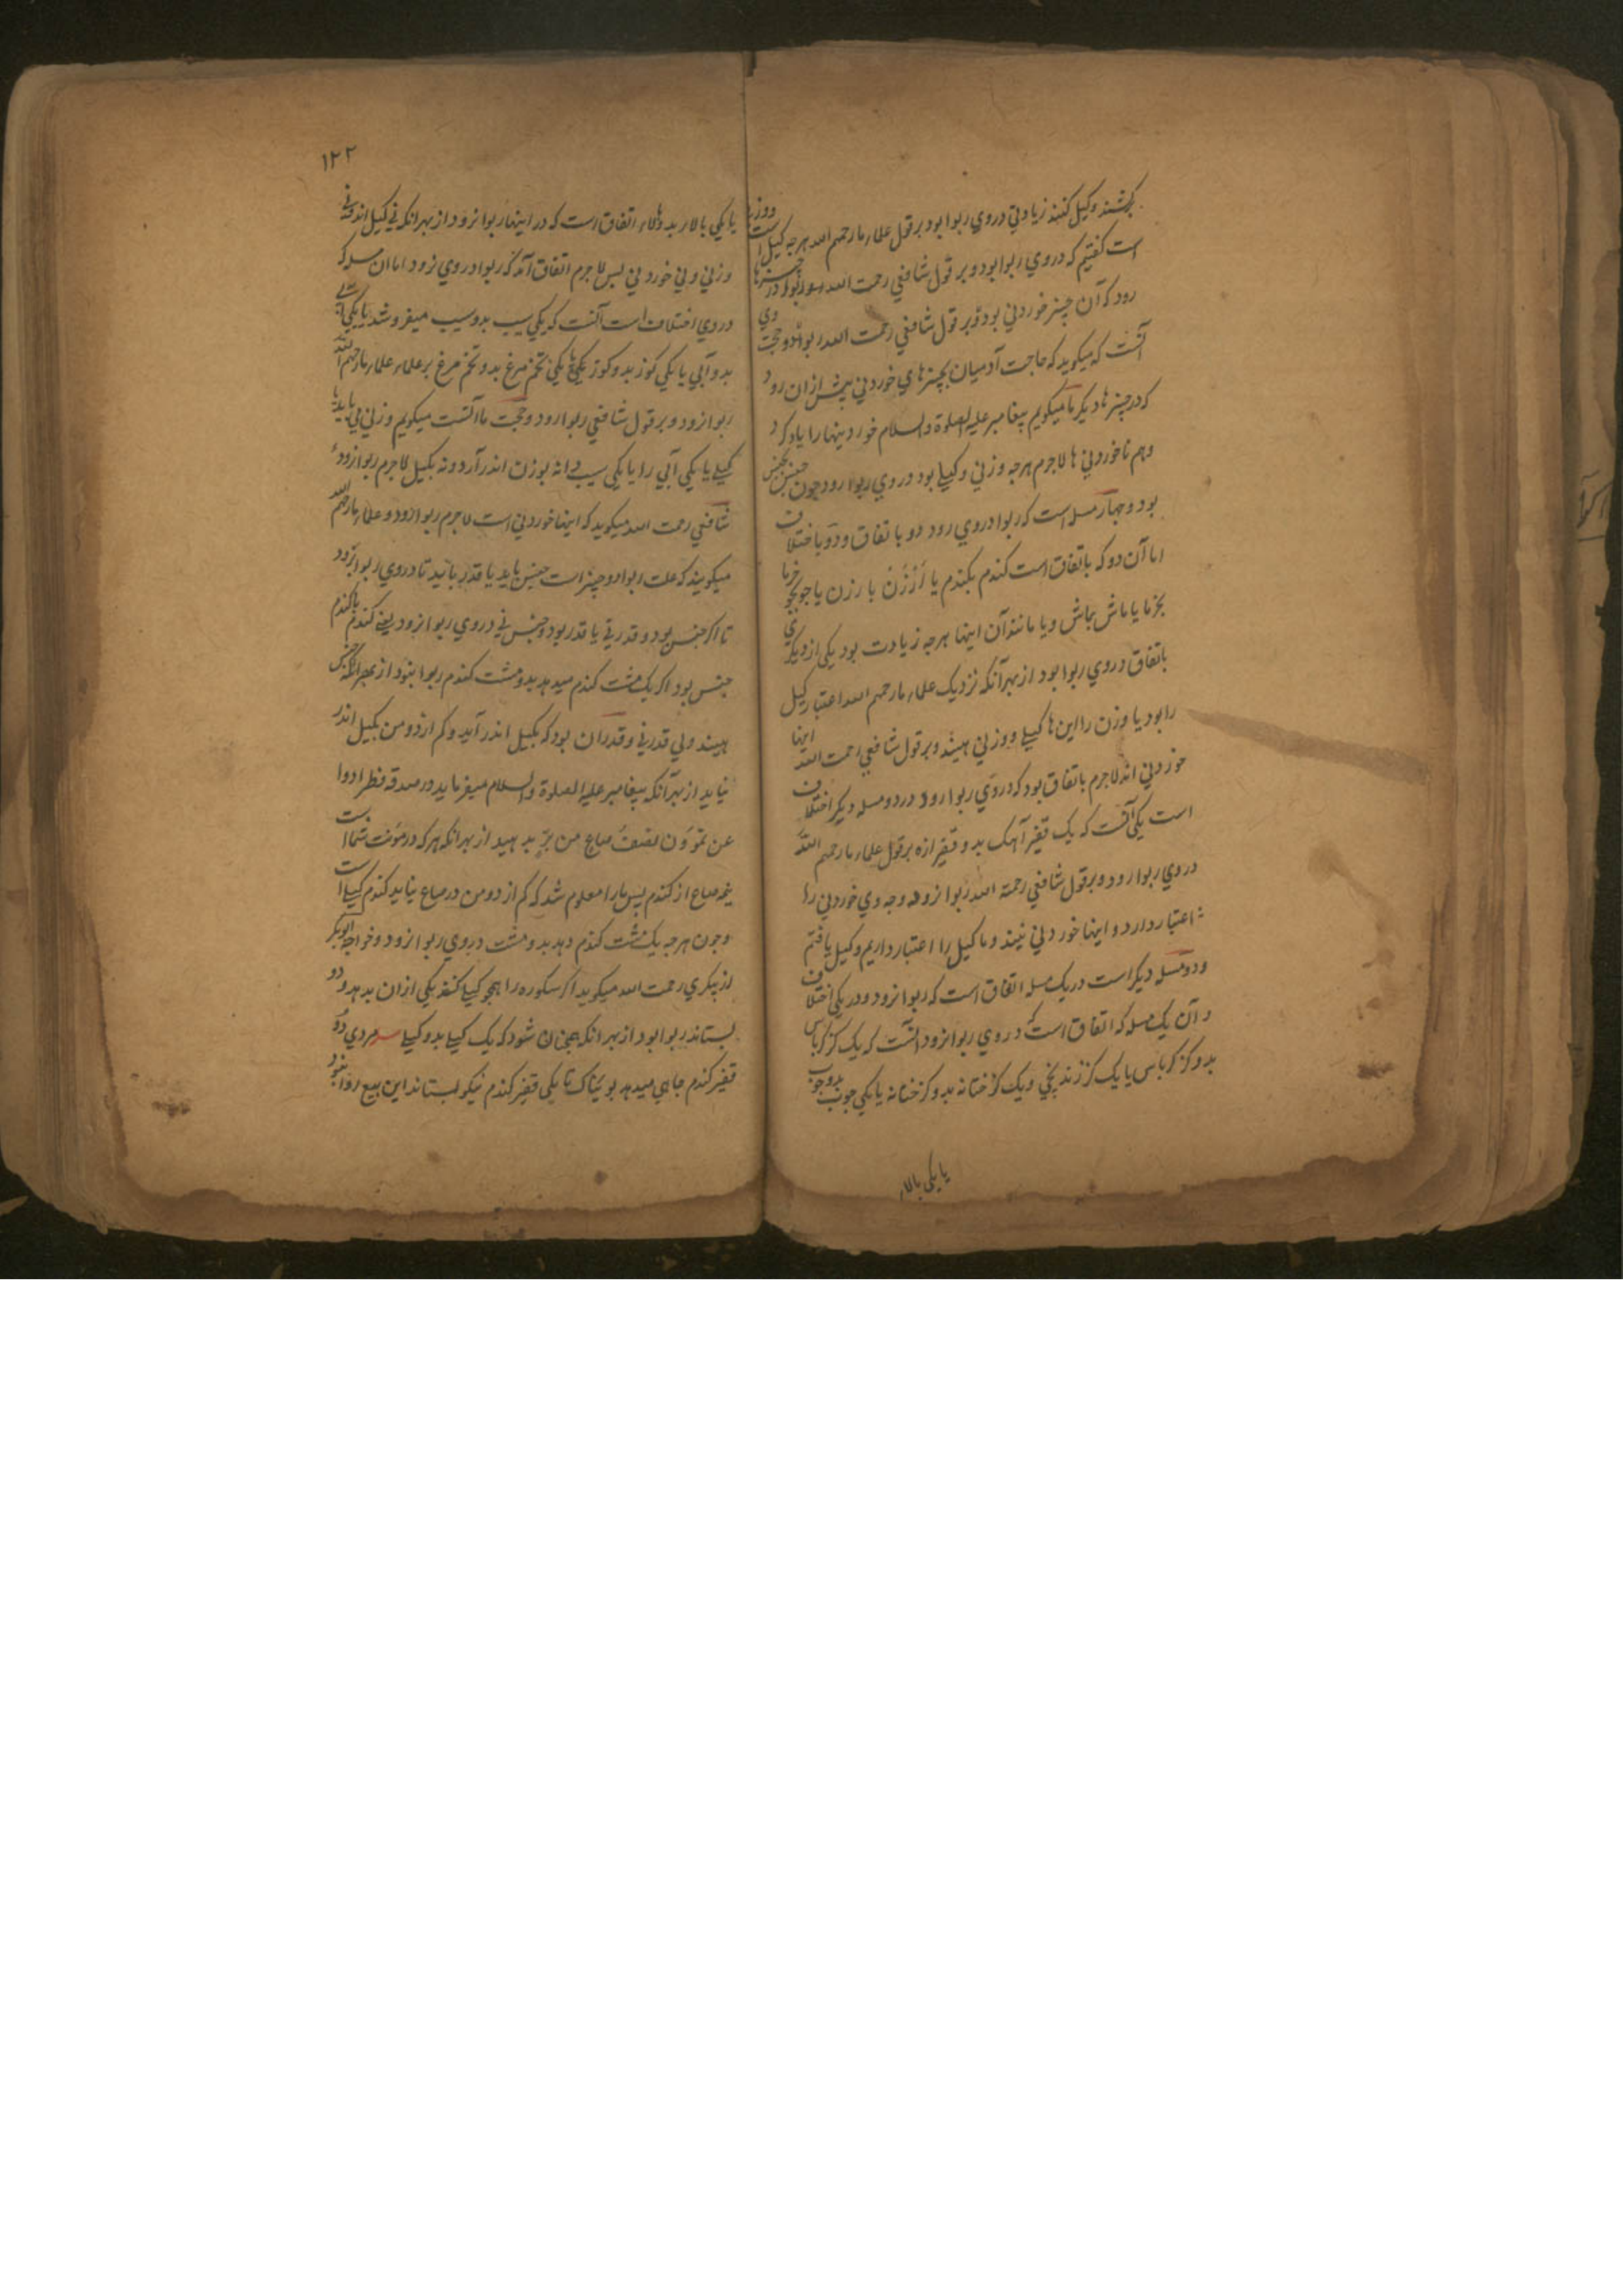 برکشند و کیل کنند زیادتی در وی ربوا بود بر قول علماء ما رحمهم الله هرچه کیل
است گفتیم که در وی ربوا بود و بر قول شافعی رحمت الله
رود که آن چیز خوردنی بود و بر قول شافعی رحمت الله ربوا و حجت وی
آنست که میکوید که حاجت آدمیان بچیزهای خوردنی بیش از ان رود
که در چیزها دیکر ما میکویم پیغامبر علیه الصلوة والسلام خوردینها را یاد کرد
وهم ناخوردنی ها لاجرم هرچه وزنی و کیلی بود در وی ربوا رود چون جنس بجنس
بود و چهار مسله است که ربوا در وی رود دو باتفاق و دو باختلاف
اما آن دو که باتفاق است کندم بکندم یا ارزن بارزن یا جو بجو خرما
بخرما یا ماش بماش و یا مانند آن اینها هرچه زیادت بود یکی از دیکری
باتفاق در وی ربوا بود از بهر آنکه نزدیک علماء ما رحمهم الله اعتبار کیل
را بود یا وزن را این ها کیلی و وزنی هیند و بر قول شافعی رحمت الله اینها
خوردنی اند لاجرم باتفاق بود که در وی ربوا رود در دو مسله دیکر اختلاف
است یکی آنست که یک قفیز آهک بدو قفیز ازه بر قول علماء ما رحمهم الله
در وی ربوا رود و بر قول شافعی رحمة الله ربوا نرود وجه وی خوردنی را
اعتبار دارد و اینها خوردنی نیند و ما کیل را اعتبار داریم و کیل یافتم
و دو مسله دیکر است در یک مسله اتفاق است که ربوا نرود و در یکی اختلاف
و آن یک مسله که اتفاق است که در وی ربوا نرود آنست که یک کز کرباس
بدو کز کرباس یا یک کز زندپیجی و یک کز ختانه بدو کز ختانه یا یکی چوب بدو چوب
یا یکی بالار
١٢٢
یا یکی بالار بدو بالار اتفاق است که در اینها ربوا نرود از بهر انکه نی کیل اند و نی
وزنی و نی خوردنی بس لاجرم اتفاق آمد که ربوا در وی نرود اما ان مسله که
در وی اختلاف است آنست که یکی سیب بدو سیب میفروشد یا یکی آبی
بدو آبی یا یکی کوز بدو کوز یا یکی تخم مرغ بدو تخم مرغ بر علماء علماء ما رحمهم الله
ربوا نرود و بر قول شافعی ربوا رود و حجت ما آنست میکویم وزنی می باید یا
کیلی یا یکی آبی را یا یکی سیب دانه بوزن اندر آرد و نه بکیل لاجرم ربوا نرود و
شافعی رحمت الله میکوید که اینها خوردنی است لاجرم ربوا رود و علماء ما رحمهم الله
میکویند که علت ربوا دو چیز است جنس باید با قدر باید تا در وی ربوا برود
تا اکر جنس بود و قدر نی یا قدر بود و جنس نی در وی ربوا نرود یعنی کندم با کندم
جنس بود اکر یک مشت کندم میدهد بدو مشت کندم ربوا نبود از بهر انکه جنس
هیند ولی قدر نی و قدر ان بود که بکیل اندر آید و کم از دو من بکیل اندر
نیاید از بهر آنکه پیغامبر علیه الصلوة والسلام میفرماید در صدقه فطر ادوا
عن تموّنون نصف صاع من برٍّ بدهید از بهر انکه هرکه در مؤنت شما است
نیمه صاع از کندم پس ما را معلوم شد که کم از دو من در صاع نیاید کندم کیلی است
و چون هرچه یک مشت کندم دهد بدو مشت در وی ربوا نرود و خواجه ابوبکر
رحمت الله میکوید اکر سکوره را همچو کیله کنند یکی ازان بدهد و دو
بستاند ربوا بود از بهر انکه همچنان شود که یک کیله بدو کیله مردی دو
قفیز کندم جایی میدهد بویناک تا یکی قفیز کندم نیکو بستاند این بیع روا نبود